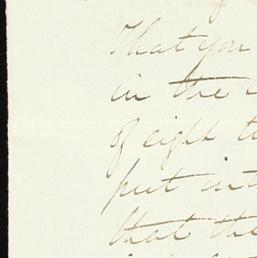 That you
in the
of eight
put in
that the